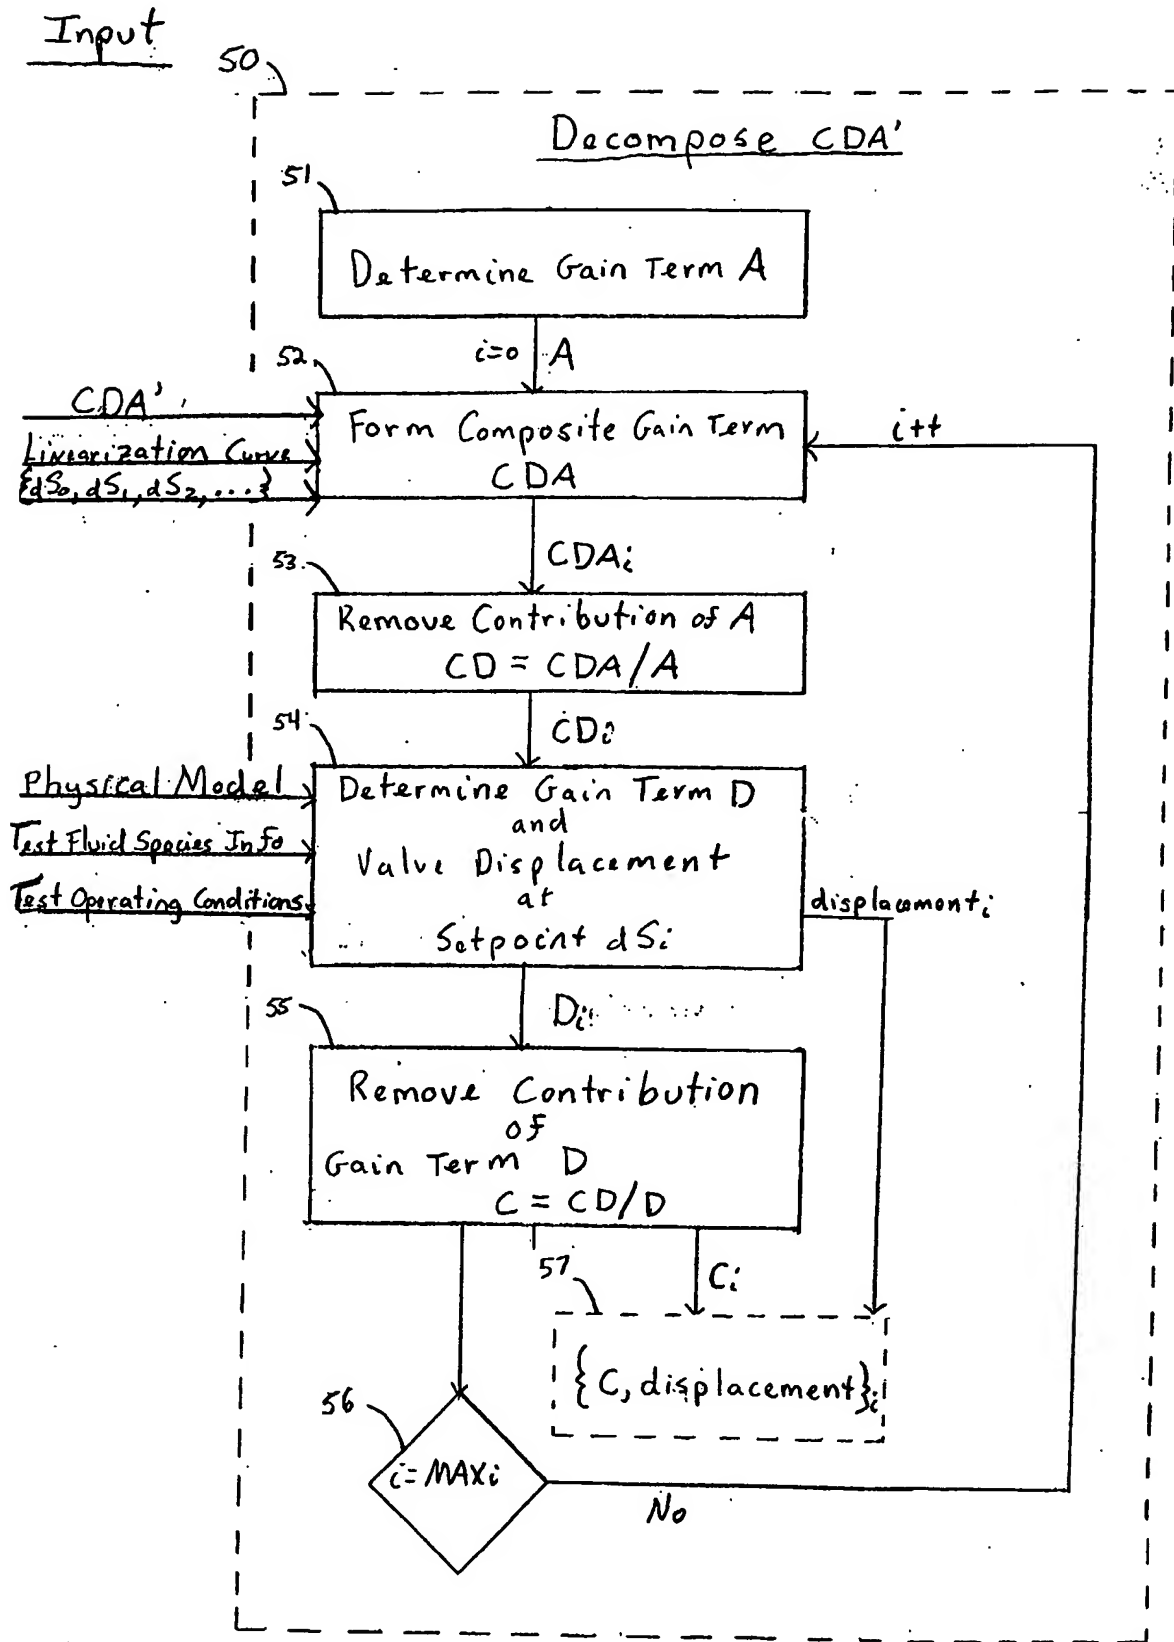 Input
50
Decompose CDA'
51
Determine Gain Term A
i=0 A
52
CDA'
Linearization Curve
{dS₀, dS₁, dS₂, ...}
Form Composite Gain Term
CDA
i++
CDAᵢ
53
Remove Contribution of A
CD = CDA/A
CDᵢ
54
Physical Model
Test Fluid Species Info
Test Operating Conditions
Determine Gain Term D
and
Valve Displacement
at
Setpoint dSᵢ
displacementᵢ
Dᵢ
55
Remove Contribution
of
Gain Term D
C = CD/D
57
Cᵢ
{C, displacement}ᵢ
56
i=MAXi
No